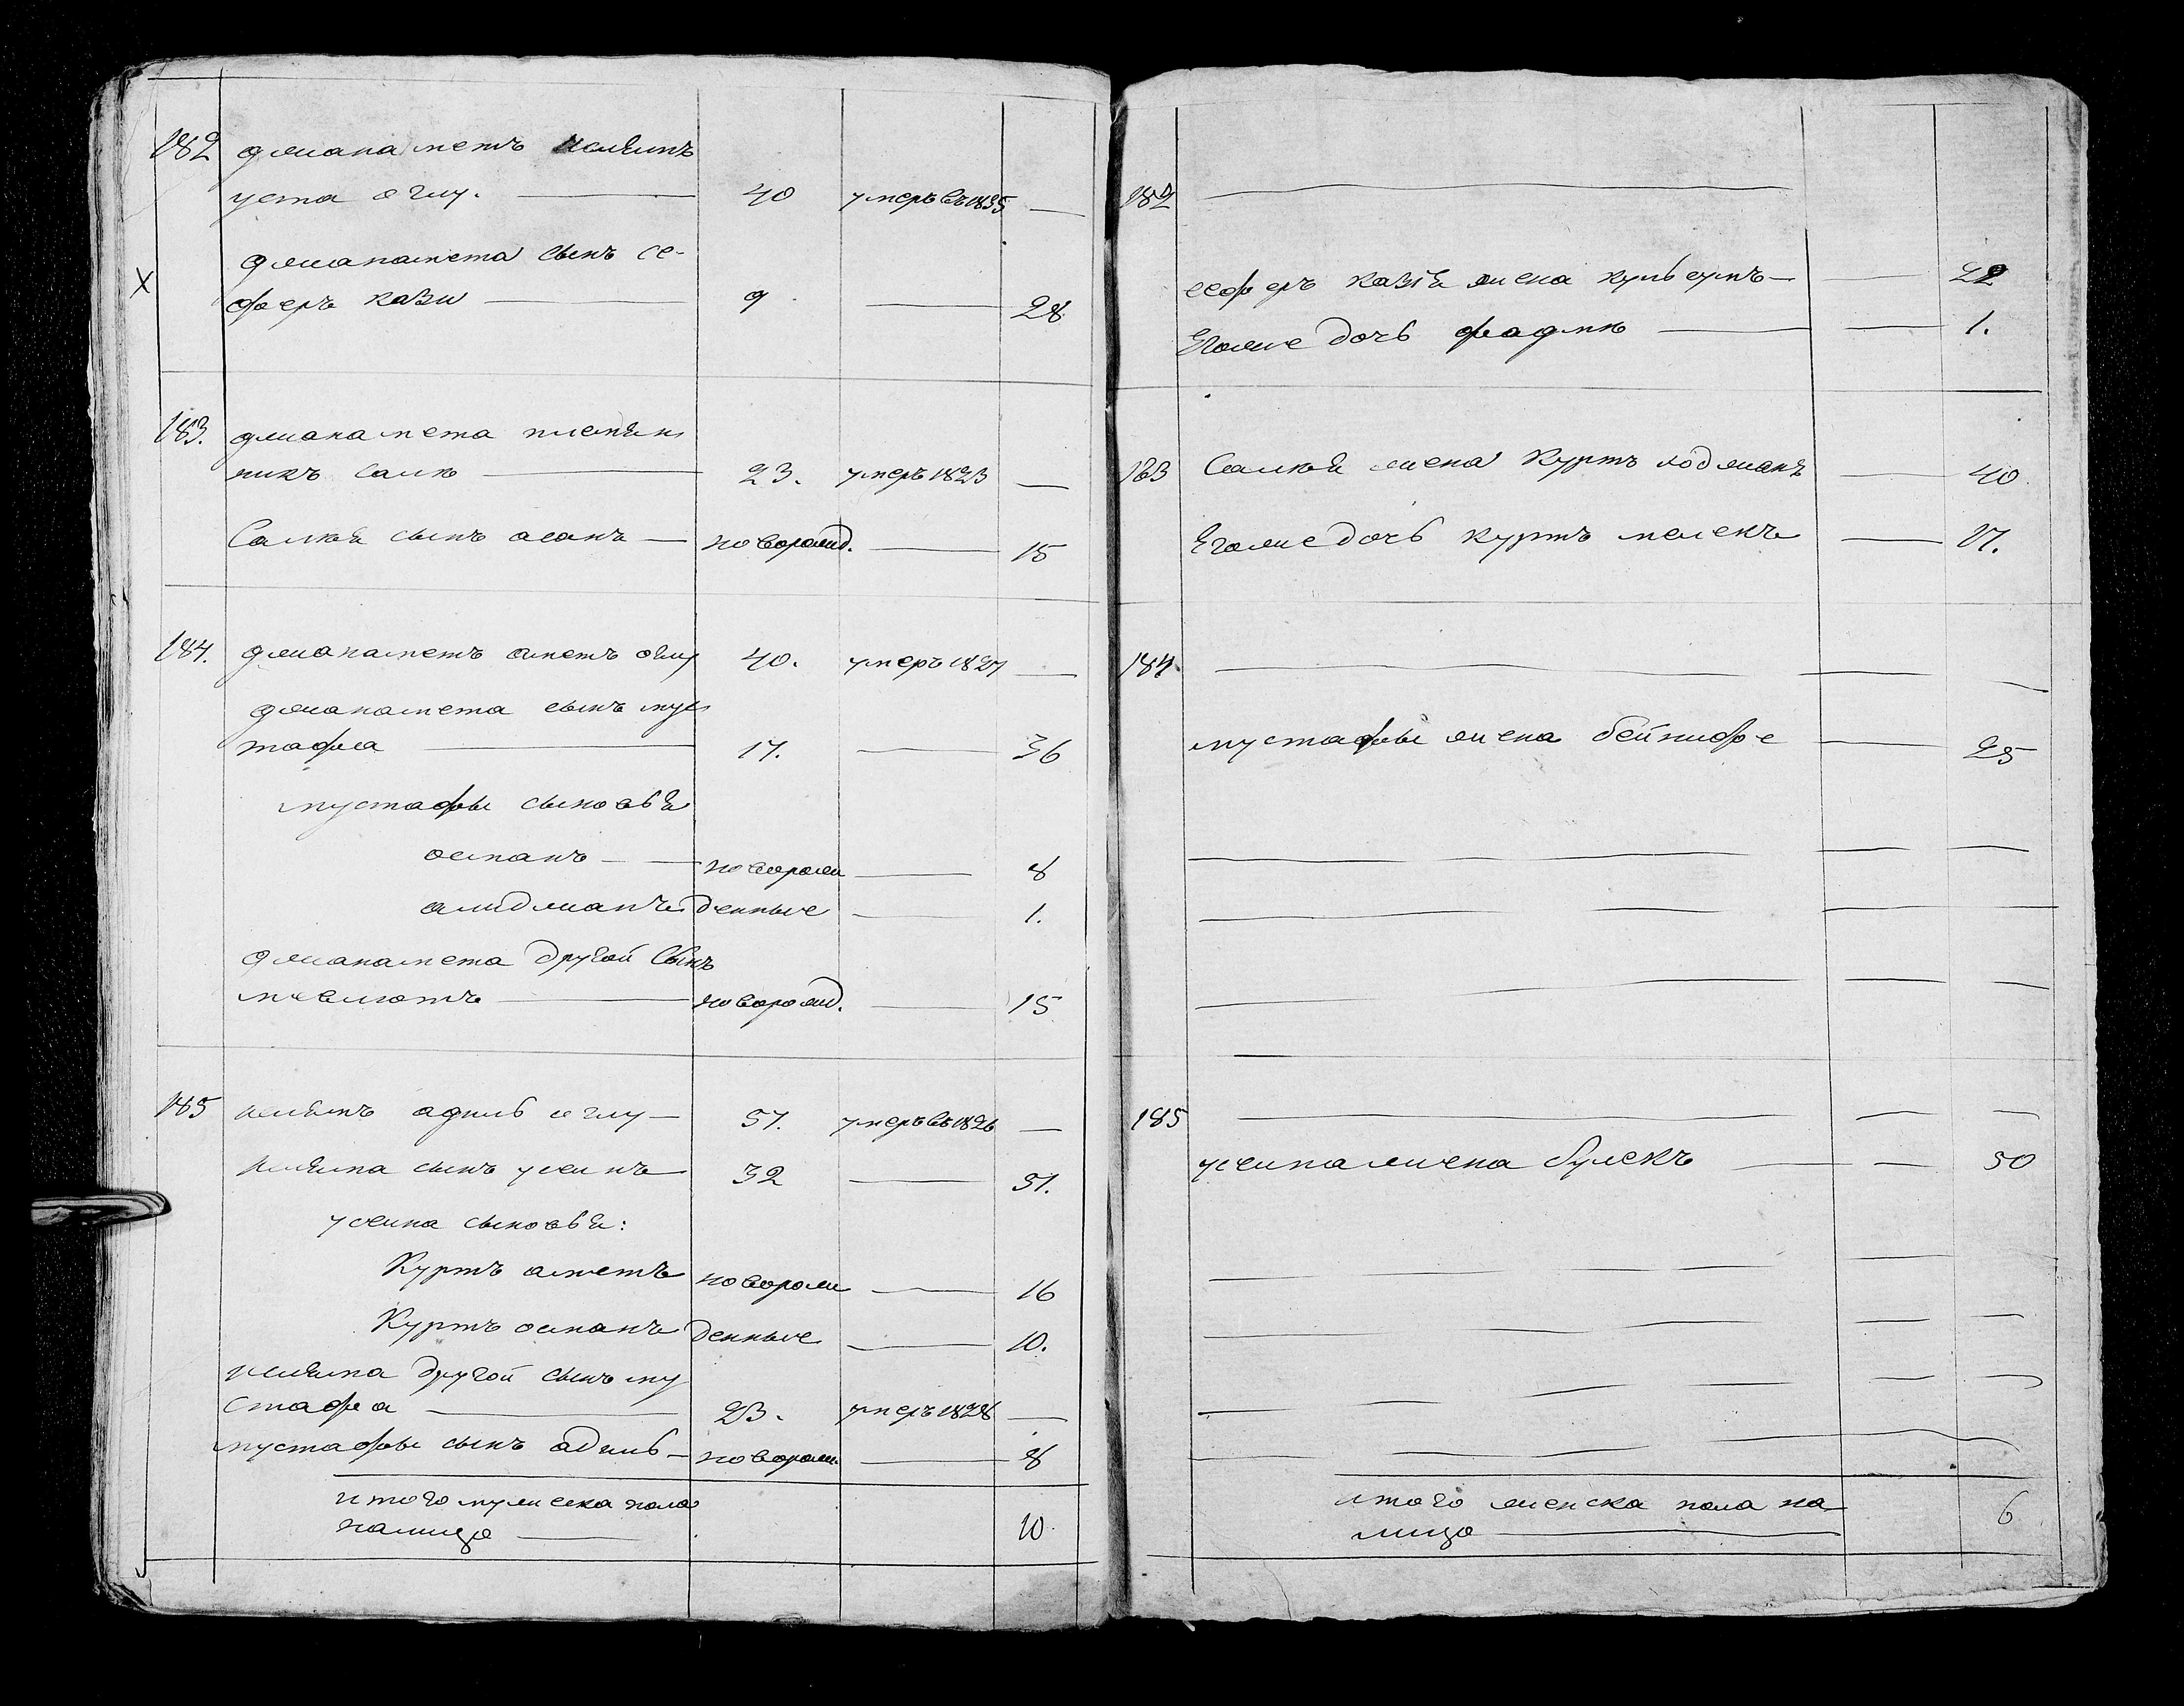 182 джанаметъ ислямъ
уста оглу. 40 умеръ въ 1835
джанамета сынъ се-
феръ кази 9 28
183. джанамета племян
никъ салю 23. умеръ 1823
Салюя сынъ асанъ новорожд. 15
184. джанаметъ аметъ оглу 40. умеръ 1827
джанамета сынъ мус
тафа 17. 36
мустафы сыновья
османъ новорож 8
алиджанъ денные 1.
джанамета другой Сынъ
мевлютъ новорожд. 15
185 ислямъ адиль оглу 57. умеръ въ 1826
исляма сынъ усеинъ 32 51.
усеина сыновья:
Куртъ аметъ новорож 16
Куртъ османъ денные 10.
исляма другой сынъ му
стафа 23. умеръ 1828
мустафы сынъ адиль новорож. 8
итого мужеска пола
налицо 10
182
сеферъ казія жена кульсумъ 22
Егоже дочь фадме 1.
183 Салюя жена Куртъ 40
Егоже дочь куртъ мелекъ 17.
184
мустафы жена бейнифе 25
185
усеина жена булекъ 50
итого женска пола на
лицо 6